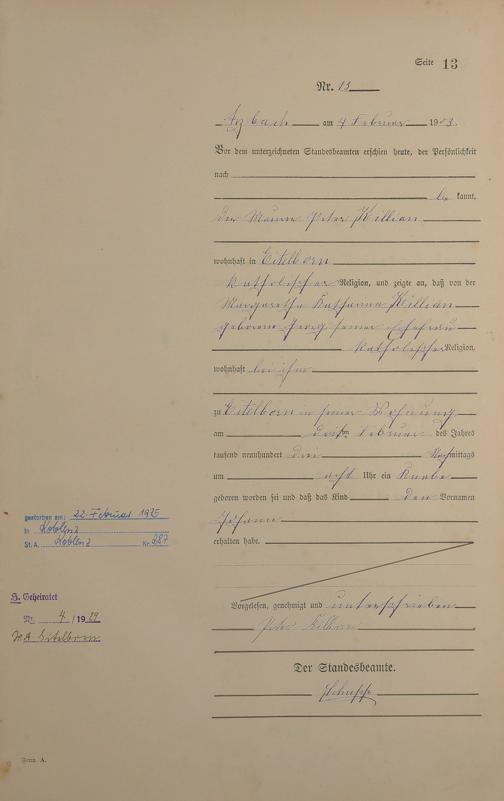 Seite 13
Nr. 13
Arzbach am 4 Februar 1903.
Vor dem unterzeichneten Standesbeamten erschien heute, der Persönlichkeit
nach
be kannt,
der Maurer Peter Killian
wohnhaft in Eitelborn
katholischer Religion, und zeigte an, daß von der
Margaretha Katharina Killian
geborene Georg seiner Ehefrau
katholischer Religion,
wohnhaft bei ihm
zu Eitelborn in seiner Wohnung
am dritten Februar des Jahres
tausend neunhundert drei Nachmittags
um acht Uhr ein Knabe
geboren worden sei und daß das Kind den Vornamen
Johann
erhalten habe.
Vorgelesen, genehmigt und unterschrieben
Peter Killian
Der Standesbeamte.
gestorben am: 22. Februar 1975
in Koblenz
St. A. Koblenz Nr. 287
Geheiratet
Nr. 4 / 19 29
Eitelborn
Form. A.